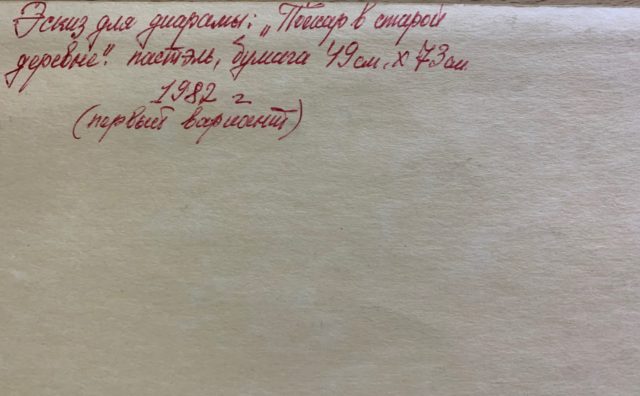 Эскиз для диарамы: „Пожар в старой
деревне". пастэль, бумага 49см. х 73см
1982 г
(первый вариант)